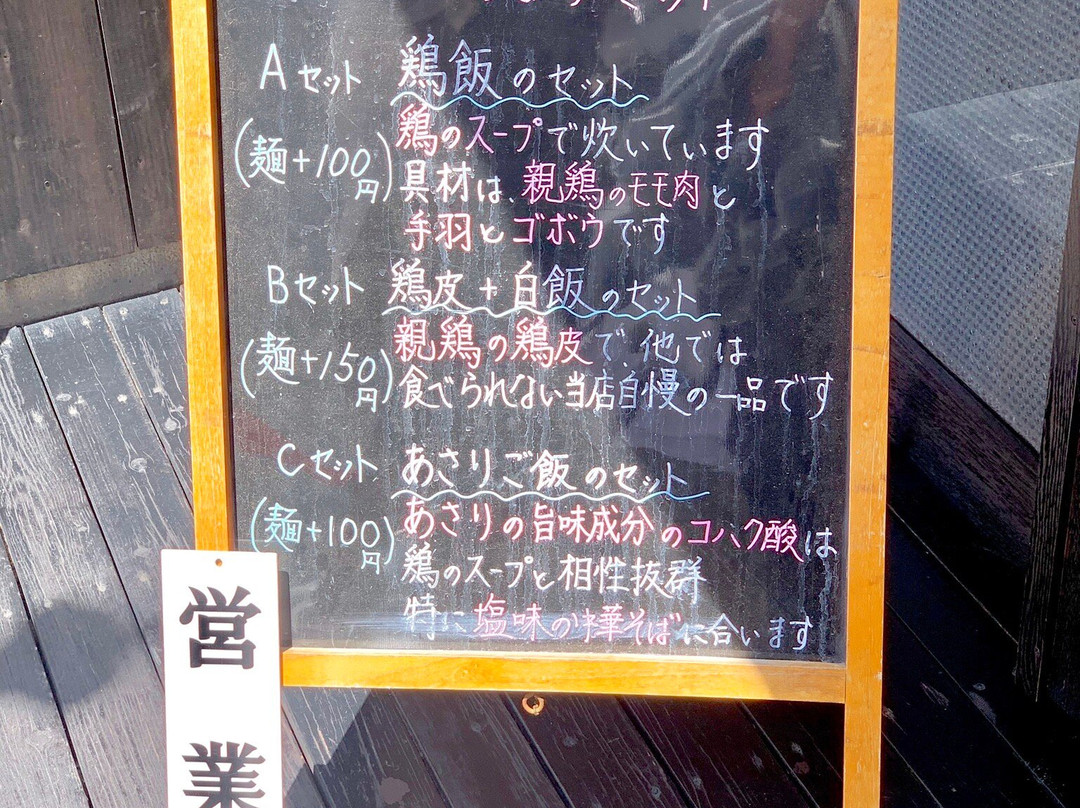 Aセット 鶏飯のセット
(麺+100円) 鶏のスープで炊いています
具材は、親鶏のモモ肉と
手羽とゴボウです
Bセット 鶏皮+白飯のセット
(麺+150円) 親鶏の鶏皮で、他では
食べられない当店自慢の一品です
Cセット あさりご飯のセット
(麺+100円) あさりの旨味成分のコハク酸は
鶏のスープと相性抜群
特に塩味の中華そばに合います
営業